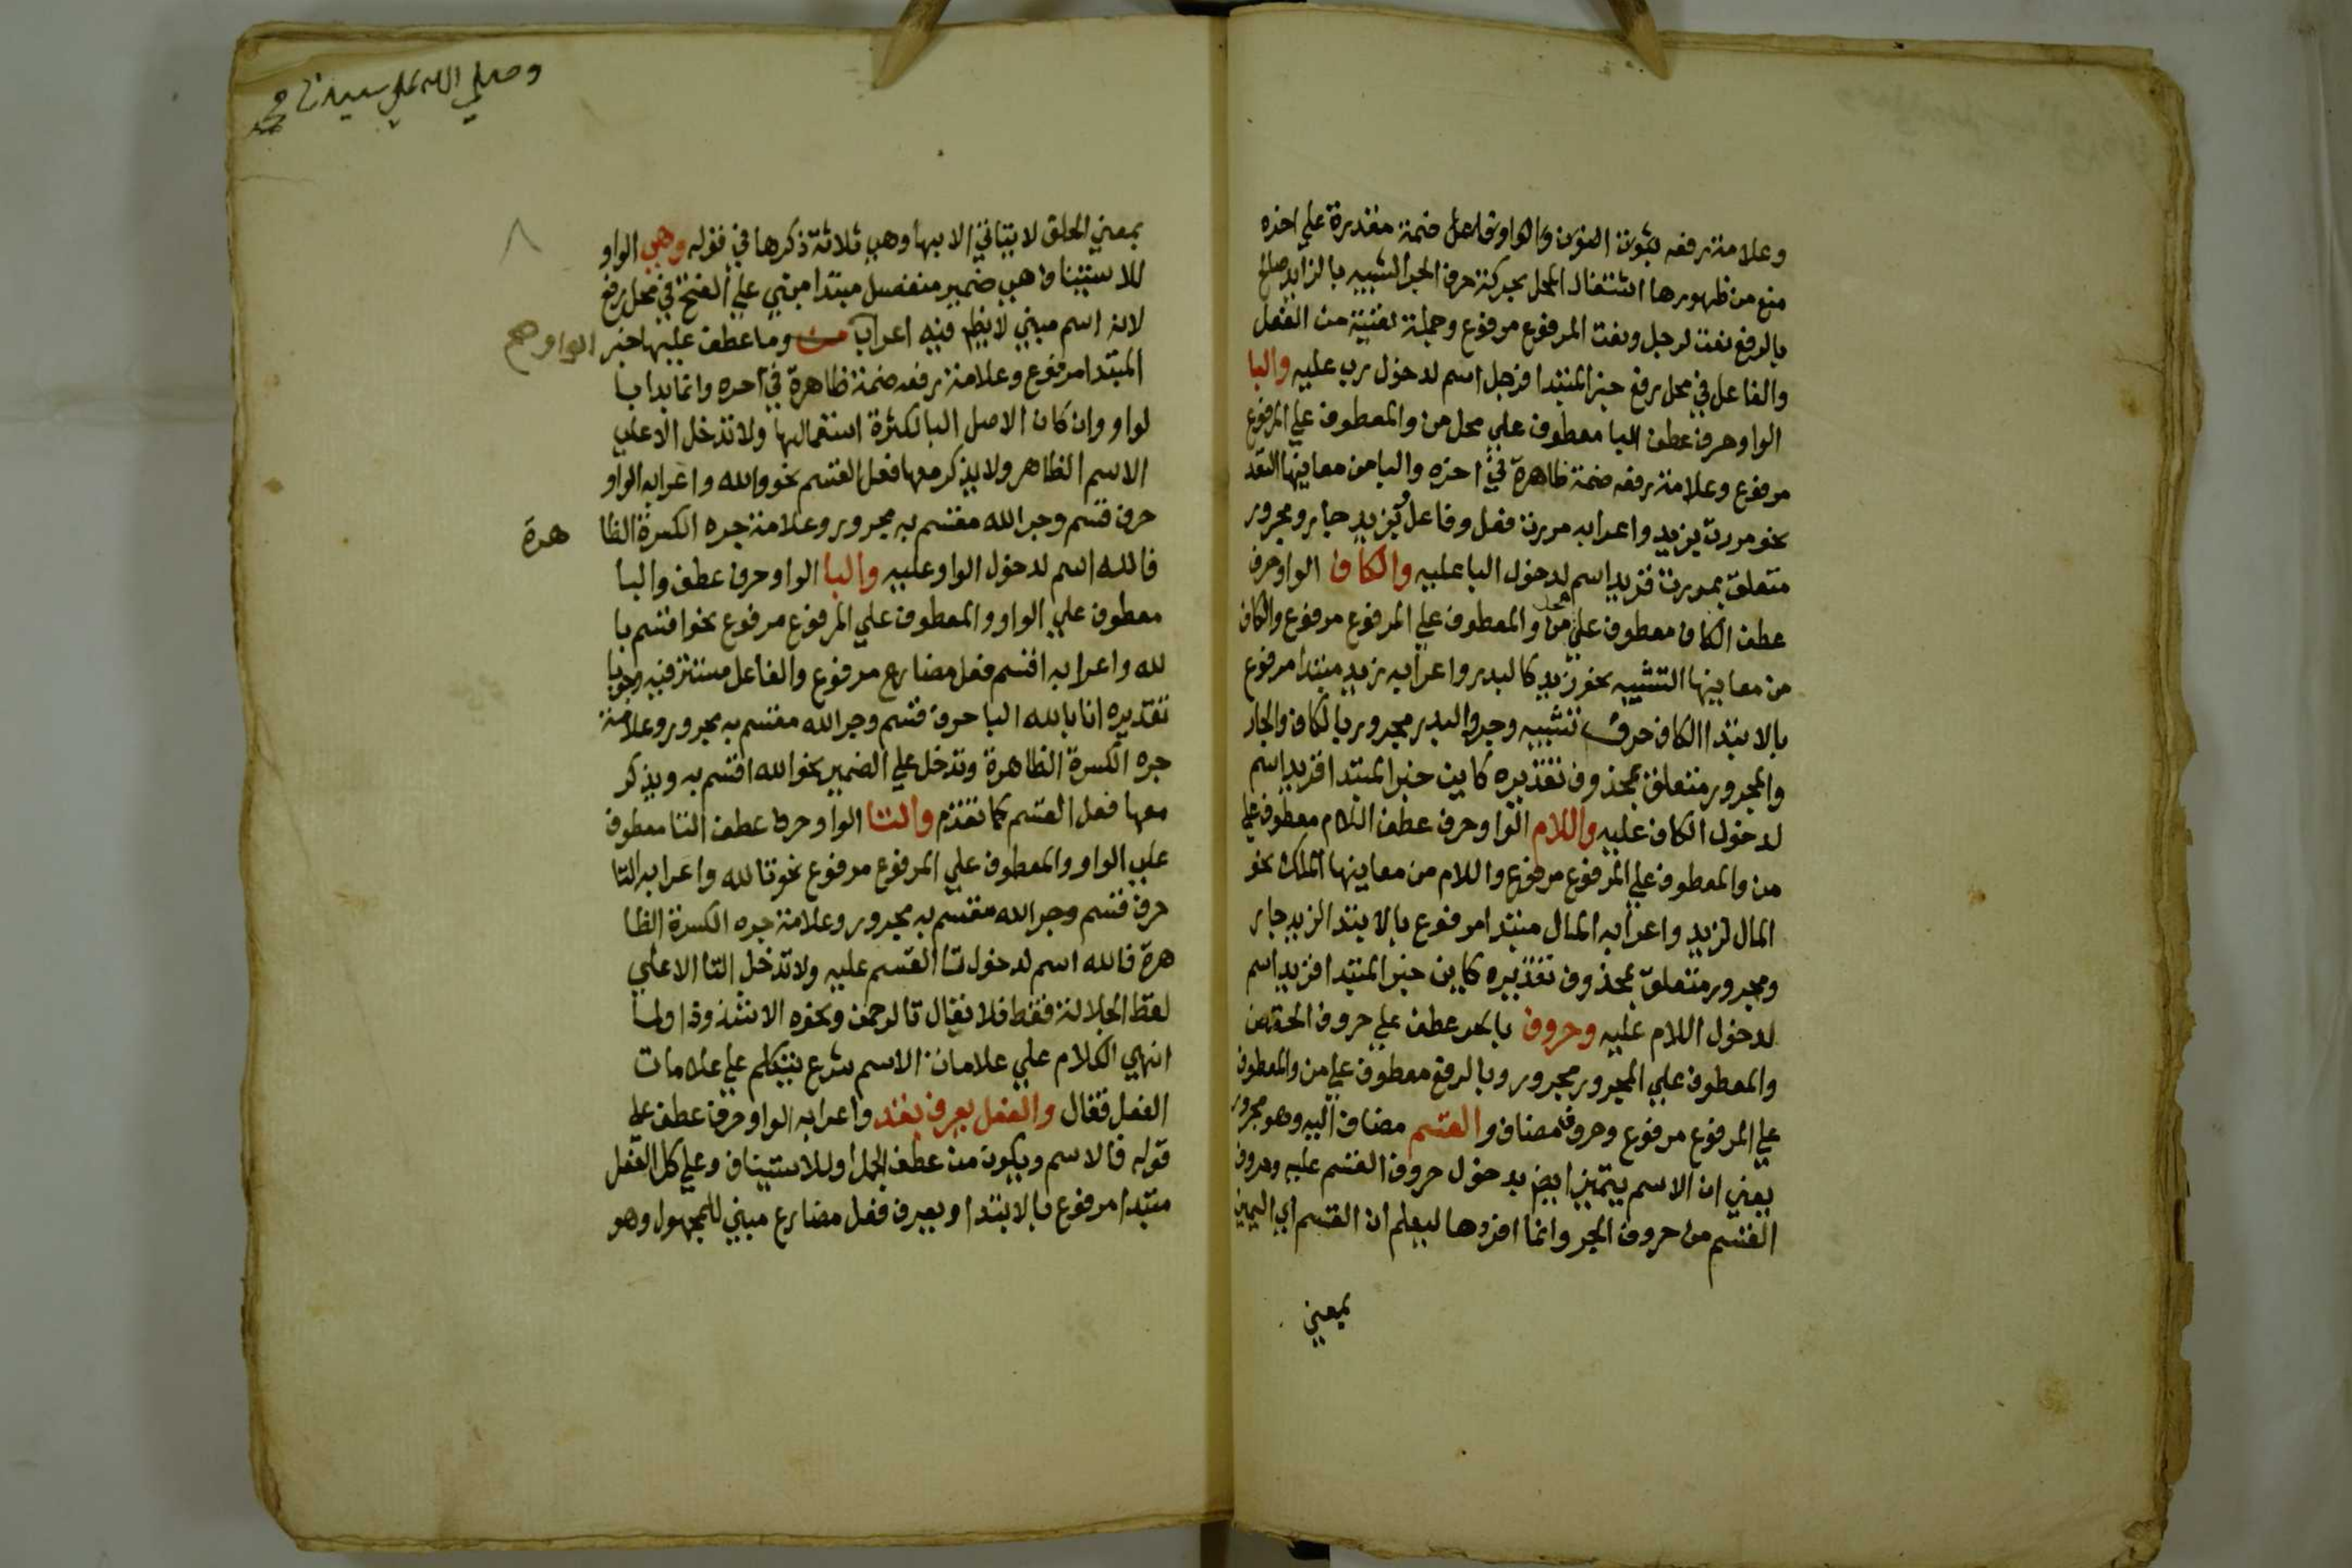 وعلامة رفعه ثبوت النون والواو فاعل ضمة مقدرة علي اخره
منع من ظهورها اشتغال المحل بحركة حرف الجر الشبيه بالزايد صالح
بالرفع نعت لرجل ونعت المرفوع مرفوع وجملة لقيته من الفعل
والفاعل في محل رفع خبر المبتدا فرجل اسم لدخول رب عليه والبا
الواو حرف عطف البا معطوف علي محل من والمعطوف علي المرفوع
مرفوع وعلامة رفعه ضمة ظاهرة في اخره والبا من معانيها التعد
نحو مررت بزيد واعرابه مررت فعل وفاعل وبزيد جار ومجرور
متعلق بمررت فزيد اسم لدخول البا عليه والكاف الواو حرف
عطف الكاف معطوف علي محل من والمعطوف علي المرفوع مرفوع والكاف
من معانيها التشبيه نحو زيد كالبدر واعرابه زيد مبتدا مرفوع
بالابتدا الكاف حرف تشبيه وجر والبدر مجرور بالكاف والجار
والمجرور متعلق بمحذوف تقديره كاين خبر المبتدا فزيد اسم
لدخول الكاف عليه واللام الواو حرف عطف اللام معطوف علي
من والمعطوف علي المرفوع مرفوع واللام من معانيها الملك نحو
المال لزيد واعرابه المال مبتدا مرفوع بالابتدا لزيد جار
ومجرور متعلق بمحذوف تقديره كاين خبر المبتدا فزيد اسم
لدخول اللام عليه وحروف بالجر عطف علي حروف الخفض
والمعطوف علي المجرور مجرور وبالرفع معطوف علي من والمعطوف
علي المرفوع مرفوع وحروف مضاف والقسم مضاف اليه وهو مجرور
يعني ان الاسم يتميز ايض بدخول حروف القسم عليه وحروف
القسم من حروف الجر وانما افردها ليعلم ان القسم اي اليمين
بمعني
وصلي الله علي سيدنا محمد
٨
بمعني الحلق لا يتاتي الا بها وهي ثلاثة ذكرها في قوله وهي الواو
للاستيناف هي ضمير منفصل مبتدا مبني علي الفتح في محل رفع
لانه اسم مبني لا يظهر فيه اعراب من وما عطف عليها خبر الواو صح
المبتدا مرفوع وعلامة رفعه ضمة ظاهرة في اخره وانما بدا با
لواو وان كان الاصل البا لكثرة استعمالها ولا تدخل الا علي
الاسم الظاهر ولا يذكر معها فعل القسم نحو والله واعرابه الواو
حرف قسم وجر الله مقسم به مجرور وعلامة جره الكسرة الظا هرة
فالله اسم لدخول الواو عليه والبا الواو حرف عطف والبا
معطوف علي الواو والمعطوف علي المرفوع مرفوع نحو اقسم با
لله واعرابه اقسم فعل مضارع مرفوع والفاعل مستتر فيه وجوبا
تقديره انا بالله البا حرف قسم وجر الله مقسم به مجرور وعلامة
جره الكسرة الظاهرة وتدخل علي الضمير نحو الله اقسم به ويذكر
معها فعل القسم كما تقدم والتا الواو حرف عطف التا معطوف
علي الواو والمعطوف علي المرفوع مرفوع نحو تالله واعرابه التا
حرف قسم وجر الله مقسم به مجرور وعلامة جره الكسرة الظا
هرة فالله اسم لدخول تا القسم عليه ولا تدخل التا الا علي
لفظ الجلالة فقط فلا نقال تالرحمن ونحوه الا شذوذا ولما
انهي الكلام علي علامات الاسم شرع يتكلم علي علامات
الفعل فقال والفعل يعرف بقد واعرابه الواو حرف عطف علي
قوله فالاسم ويكون من عطف الجمل او للاستيناف وعلي كل الفعل
مبتدا مرفوع بالابتدا ويعرف فعل مضارع مبني للمجهول وهو